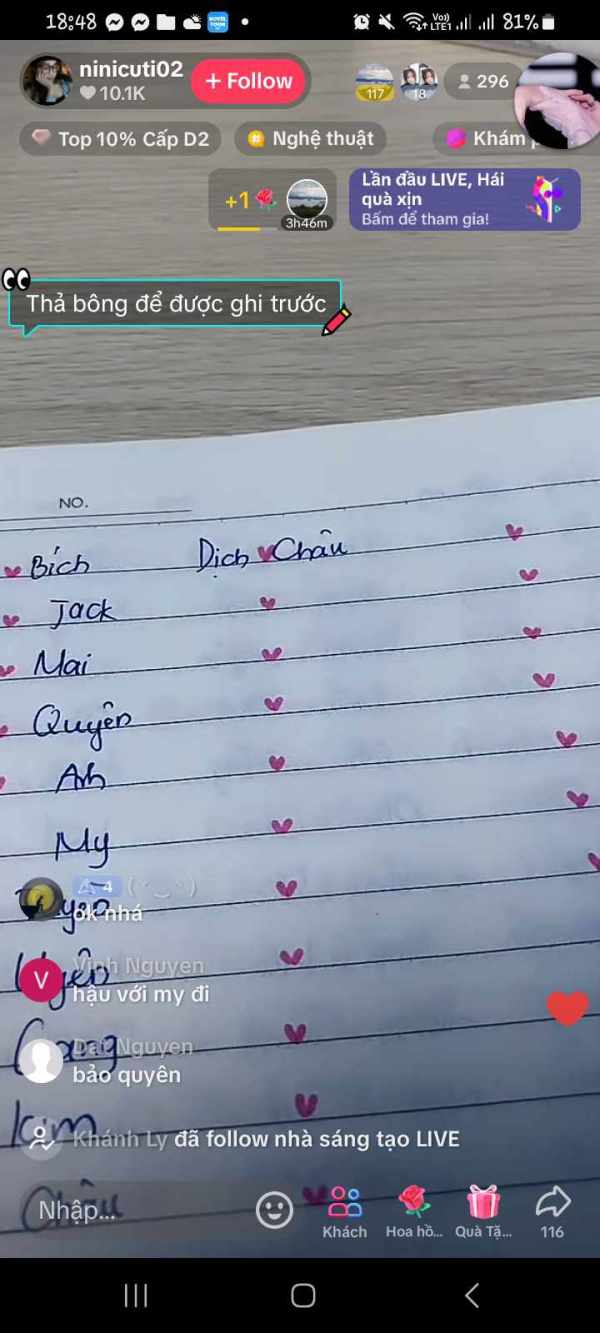 18:48
Vo))
LTE1
81%
ninicuti02
10.1K
+ Follow
117
18
296
Top 10% Cấp D2
Nghệ thuật
Khám
+1
3h46m
Lần đầu LIVE, Hái
quà xịn
Bấm để tham gia!
Thả bông để được ghi trước
NO.
Bích Dịch Châu
Jack
Mai
Quyên
Anh
My
4
ok nhá
Vinh Nguyen
V
hậu với my đi
Dat Nguyen
bảo quyên
Kim
Khánh Ly đã follow nhà sáng tạo LIVE
Châu
Nhập...
Khách
Hoa hồ...
Quà Tặ...
116